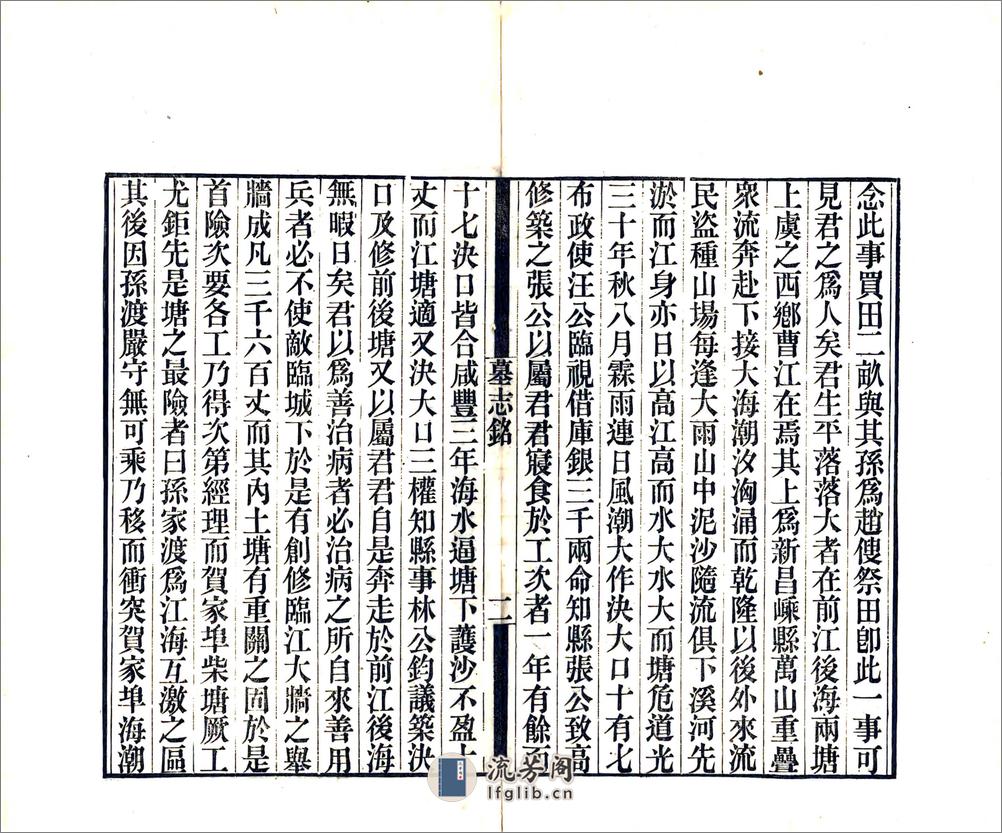 念此事買田二畝與其孫爲趙傁祭田卽此一事可
見君之爲人矣君生平落落大者在前江後海兩塘
上虞之西鄕曹江在焉其上爲新昌嵊縣萬山重疊
衆流奔赴下接大海潮汐洶涌而乾隆以後外來流
民盜種山場每逢大雨山中泥沙隨流俱下溪河先
淤而江身亦日以高江高而水大水大而塘危道光
三十年秋八月霖雨連日風潮大作決大口十有七
布政使汪公臨視借庫銀三千兩命知縣張公致高
修築之張公以屬君君寢食於工次者一年有餘而
墓志銘
二
十七決口皆合咸豐三年海水逼塘下護沙不盈十
丈而江塘適又決大口三權知縣事林公鈞議築決
口及修前後塘又以屬君君自是奔走於前江後海
無暇日矣君以爲善治病者必治病之所自來善用
兵者必不使敵臨城下於是有創修臨江大牆之舉
牆成凡三千六百丈而其內土塘有重關之固於是
首險次要各工乃得次第經理而賀家埠柴塘厥工
尤鉅先是塘之最險者曰孫家渡爲江海互激之區
其後因孫渡嚴守無可乘乃移而衝突賀家埠海潮
流芳阁
lfglib.cn